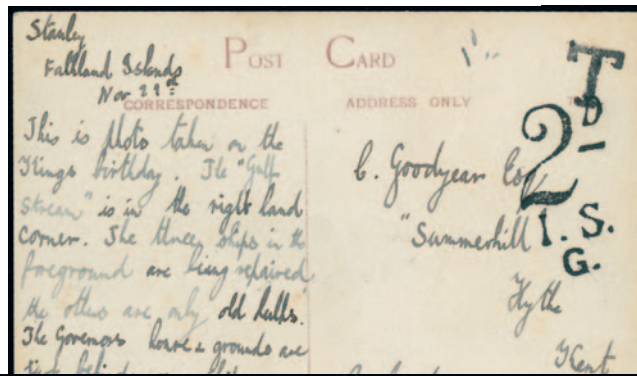 Stanley
Falkland Islands
Nov 29th
POST CARD
CORRESPONDENCE
ADDRESS ONLY
This is photo taken on the
Kings birthday. The "Gulf
Stream" is in the right hand
corner. The three ships in the
foreground are being repaired
the others are only old hulks.
The Governors house & grounds are
C. Goodyear Esq
"Summerhill
Hythe
Kent
T
2D-
I.S.
G.